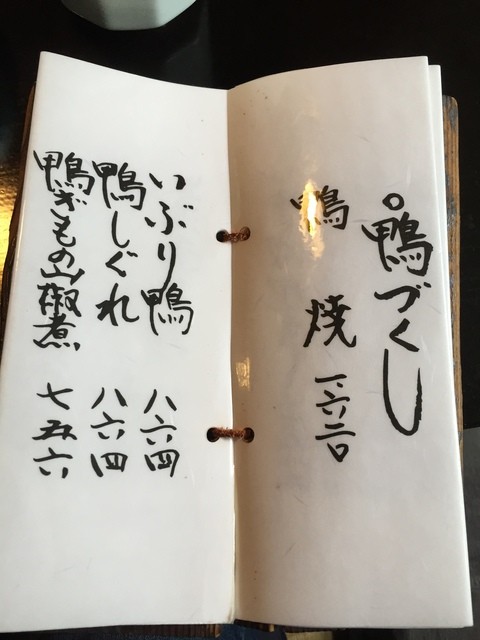 ○鴨づくし
鴨 焼 一六二〇
いぶり鴨 八六四
鴨しぐれ 八六四
鴨ぎもの山椒煮 七五六